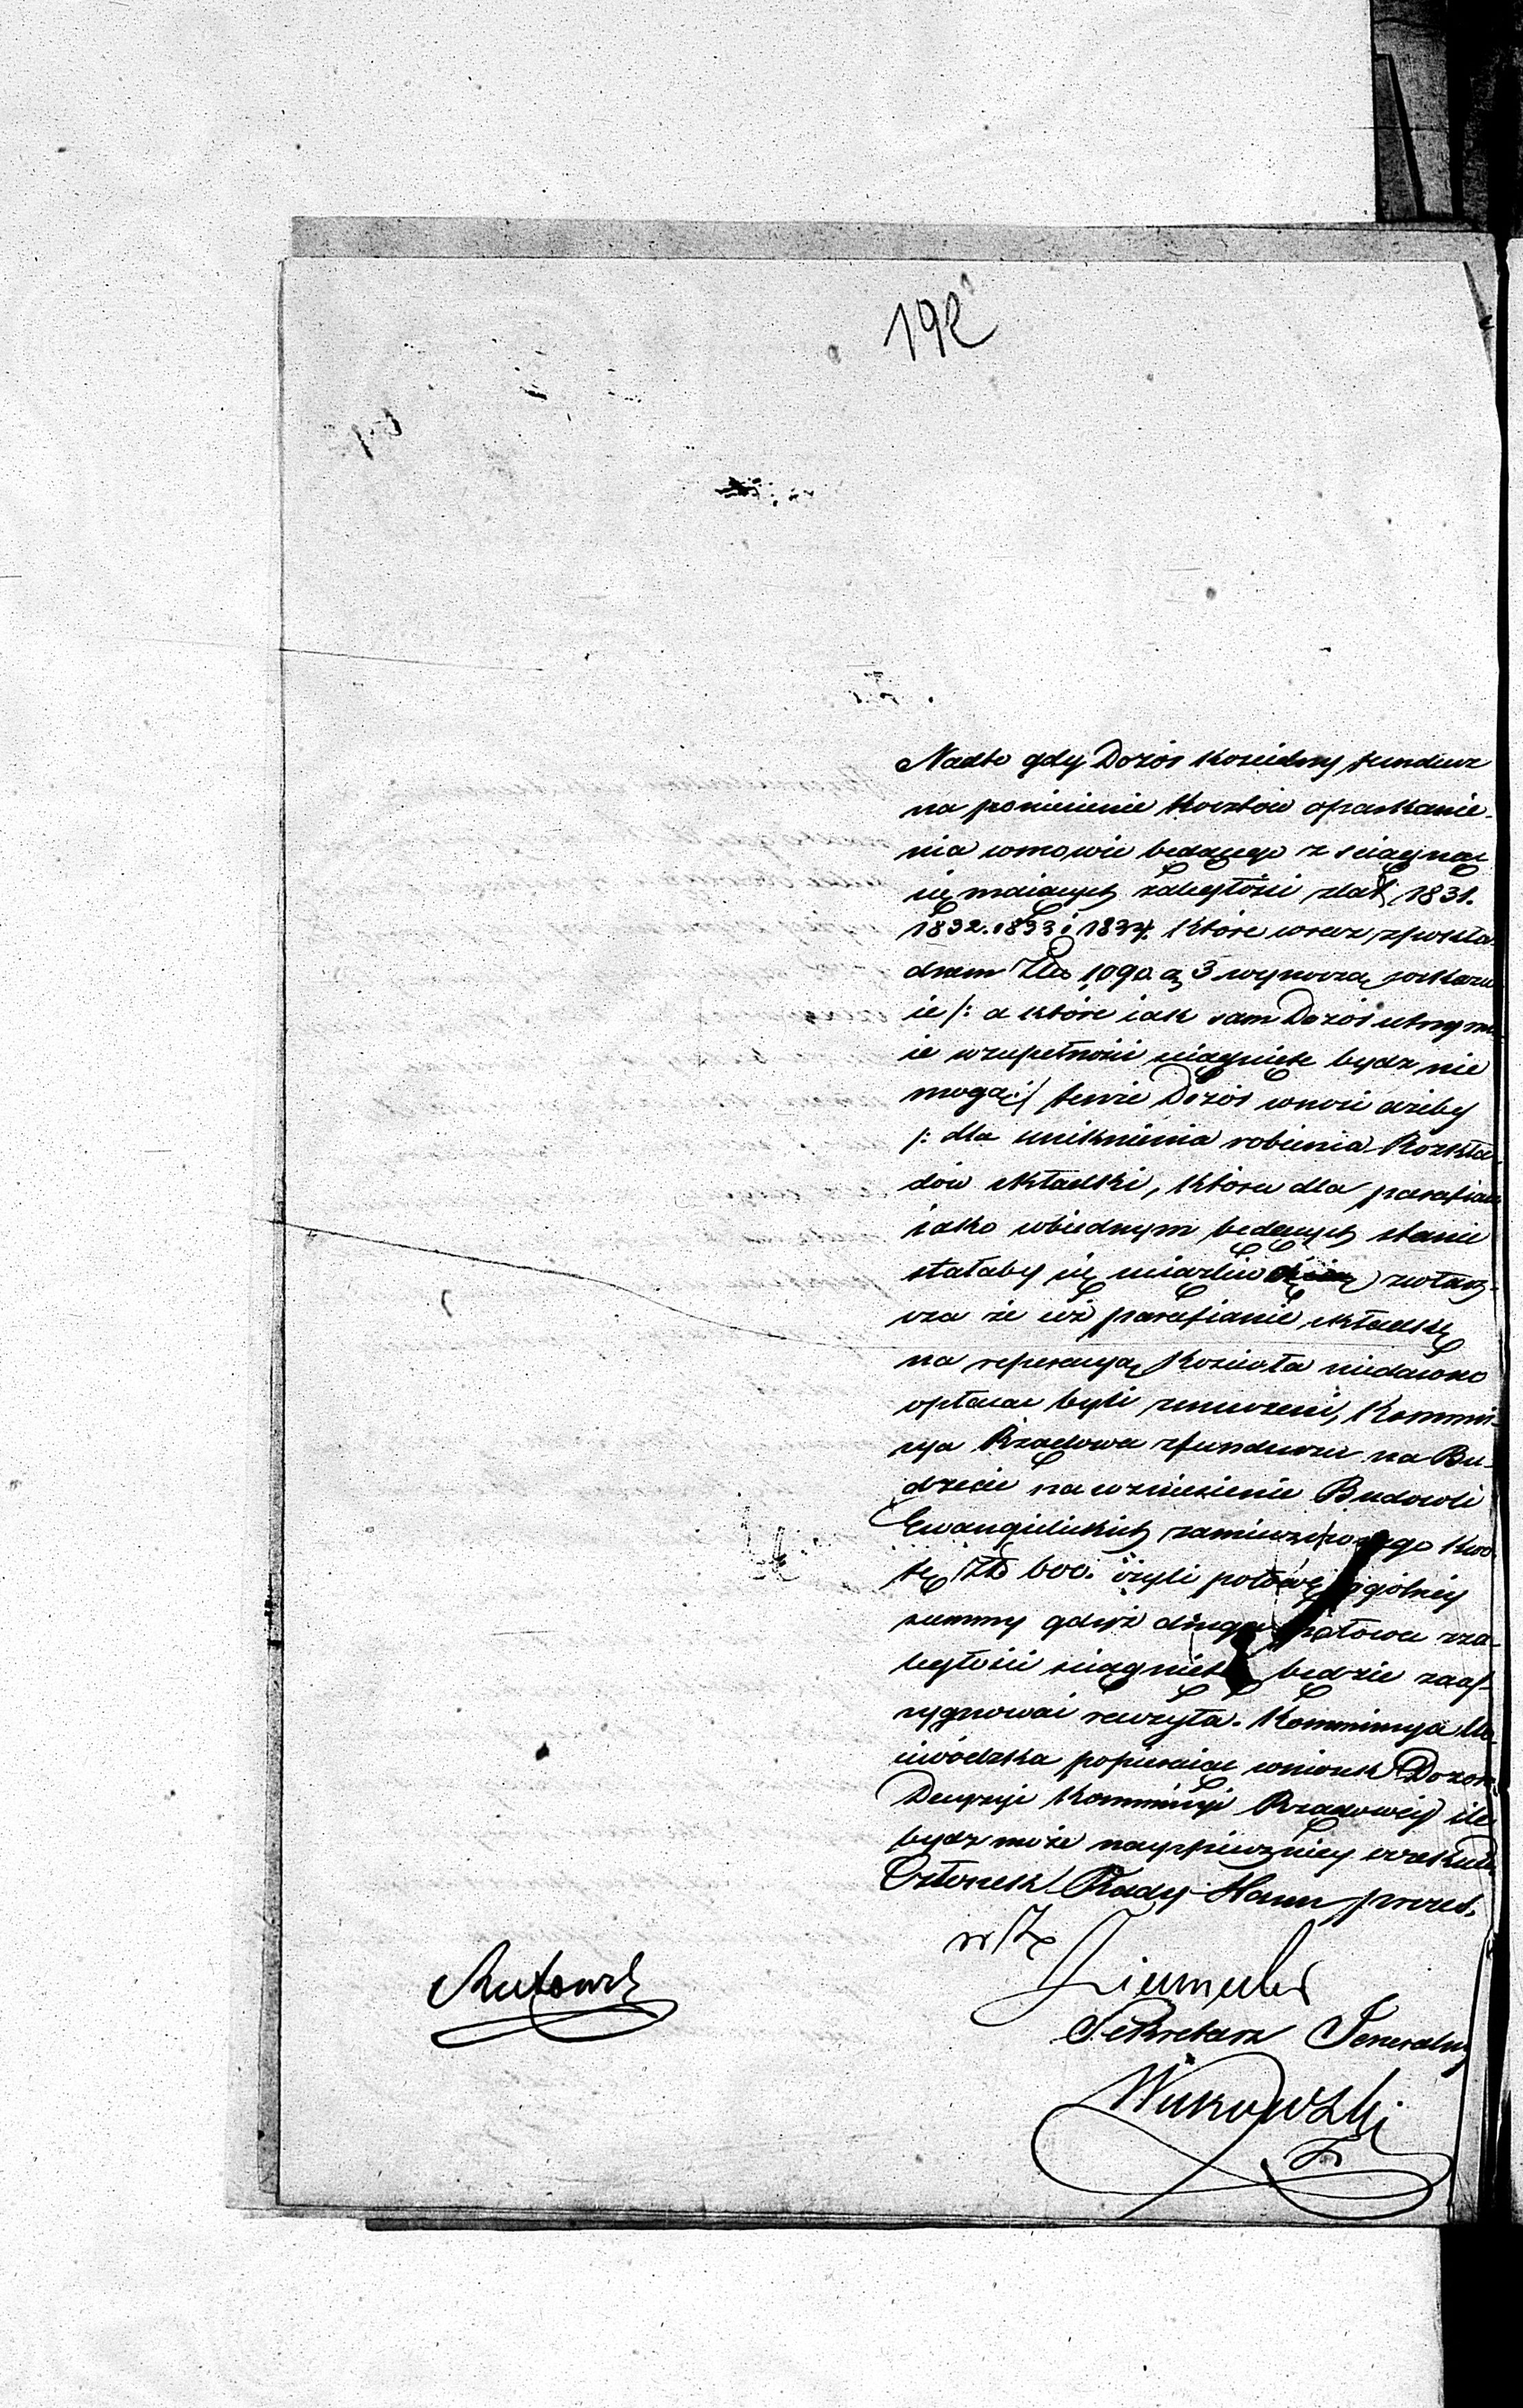 192
Nadto gdy Dozór Kościelny fundusz
na poniesienie Kosztów oparkanie-
nia wmowie będącego z ściągnąć
się maiących zaległości z lat 1831.
1832. 1833 i 1834. które wraz z pokła-
dnem Złp 1090 g 3 wynoszą wskazu
ie /: a które iak sam Dozór utrzymu
ie wzupełności ściągnięte bydz nie
mogą :/ tenże Dozór wnosi ażeby
/: dla uniknienia robienia Rozkła-
dów składki, która dla parafian
iako wbiednym będących stanie
stałaby się uciążliwą zwłasz-
cza że iuż parafianie składkę
na reperacyą Kościoła niedawno
opłacać byli zmuszeni, Kommis-
sya Rządowa z funduszu na Bu-
dżecie na wzniesienie Budowli
Ewangielickich zamieszczonego Kwo
tę Złp 600. czyli połowę ogólnéy
summy gdyż druga połowa z za-
ległości ściągnięta będzie zaas-
sygnować raczyła. Kommissya Wo
iewódzka popieraiąc wniosek Dozoru
Decyzyi Kommissyi Rządowéy ile
bydz może nayspieszniéy oczekuie
Członek Rady Stanu prezes.
w Z
Sekretarz Jeneralny